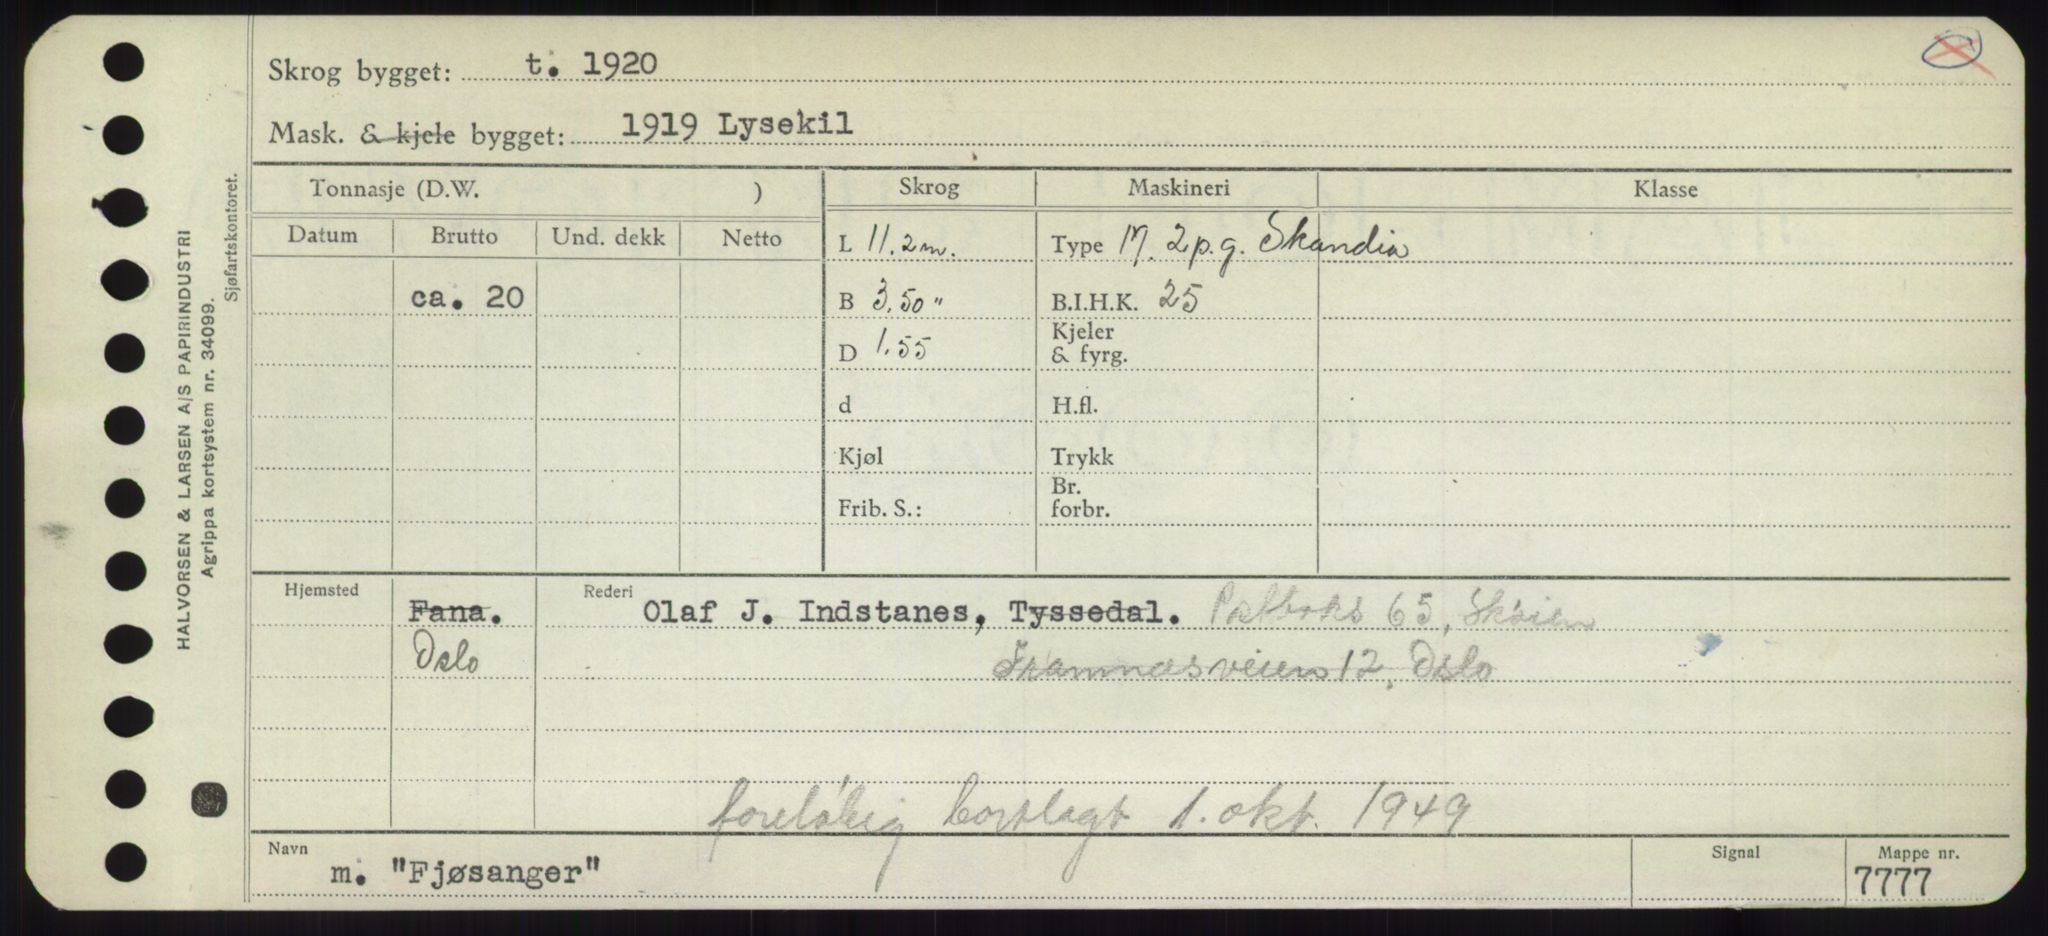 Skrog bygget: t. 1920
Mask. & kjele bygget: 1919 Lysekil
Tonnasje (D.W. )
Skrog
Maskineri
Klasse
Datum
Brutto
Und. dekk
Netto
L 11.2 m.
Type M. 2 p.g. Skandia
ca. 20
B 3.50 "
B.I.H.K. 25
D 1.55
Kjeler
& fyrg.
d
H.fl.
Kjøl
Trykk
Frib. S.:
Br.
forbr.
Hjemsted
Fana.
Rederi
Olaf J. Indstanes, Tyssedal. Postboks 65, Skøien
Oslo
Framnæsveien 12, Oslo
foreløbig bortlagt 1. okt. 1949
Navn
m. "Fjøsanger"
Signal
Mappe nr.
7777
HALVORSEN & LARSEN A/S PAPIRINDUSTRI
Agrippa kortsystem nr. 34099.
Sjøfartskontoret.